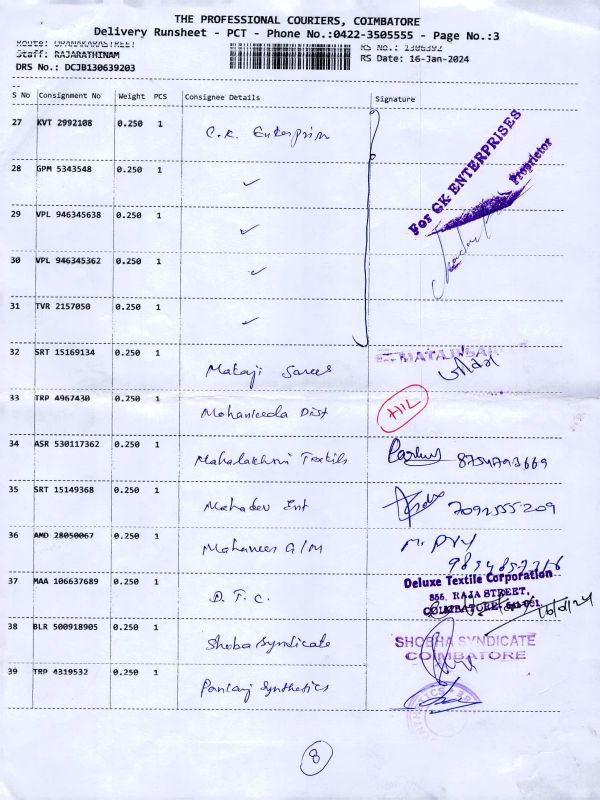 THE PROFESSIONAL COURIERS, COIMBATORE
Delivery Runsheet - PCT - Phone No.:0422-3505555 - Page No.:3
Staff: RAJARATHINAM
RS No.: 1306392
DRS No.: DCJB130639203
RS Date: 16-Jan-2024
S No Consignment No Weight PCS Consignee Details Signature
27 KVT 2992108 0.250 1 C.K. Enterprises
For GK ENTERPRISES
Proprietor
28 GPM 5343548 0.250 1 ✓
29 VPL 946345638 0.250 1 ✓
30 VPL 946345362 0.250 1 ✓
31 TVR 2157050 0.250 1 ✓
32 SRT 15169134 0.250 1 Mataji Sarees
33 TRP 4967430 0.250 1 Mohanleela Dist HIL
34 ASR 530117362 0.250 1 Mahalakhmi Textils 8754793669
35 SRT 15149368 0.250 1 Mahadev Ent 7092555209
36 AMD 28050067 0.250 1 Mahaveer G/M
37 MAA 106637689 0.250 1 D.T.C.
Deluxe Textile Corporation
856, RAJA STREET,
38 BLR 500918905 0.250 1 Shoba Syndicate
SHOBHA SYNDICATE
COIMBATORE
39 TRP 4319532 0.250 1 Pankaj Synthetics
8